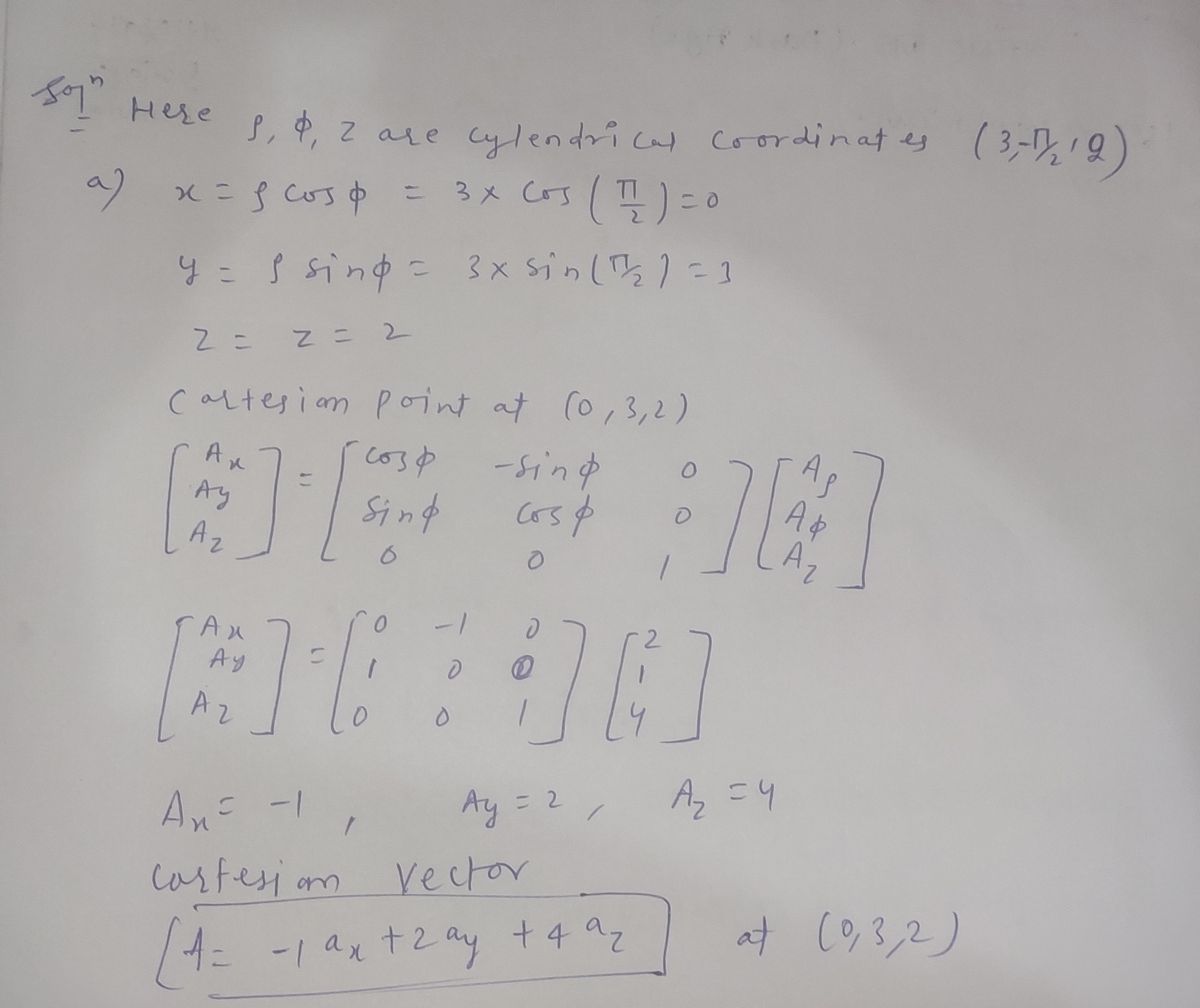 Solⁿ Here ρ, φ, z are cylendrical coordinates (3,-π/2, 2)
a) x = ρ cos φ = 3 x cos (π/2) = 0
y = ρ sin φ = 3 x sin (π/2) = 3
z = z = 2
Cartesian point at (0,3,2)
[Ax Ay Az] = [cosφ -sinφ 0
sinφ cosφ 0
0 0 1] [Aρ Aφ Az]
[Ax Ay Az] = [0 -1 0
1 0 0
0 0 1] [2 1 4]
Ax = -1, Ay = 2, Az = 4
Cartesian Vector
A = -1 ax + 2 ay + 4 az at (0,3,2)